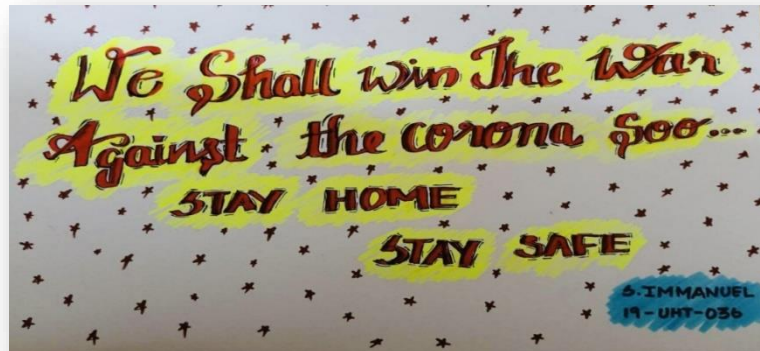 We Shall win The War
Against the corona Soo...
STAY HOME
STAY SAFE
S.IMMANUEL
19-UHT-036